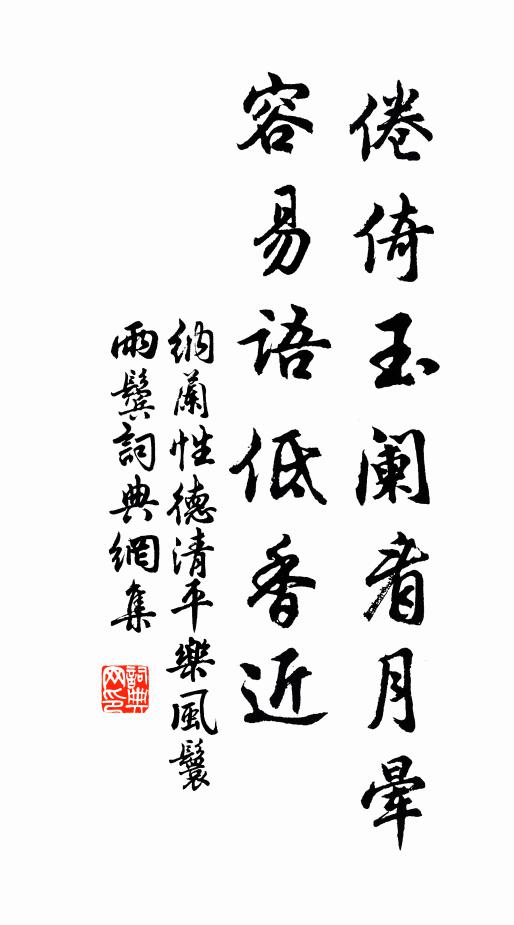 倦倚玉阑看月晕
容易語低香近
納蘭性德清平樂風鬟
雨鬓詞典網集
詞典
网印